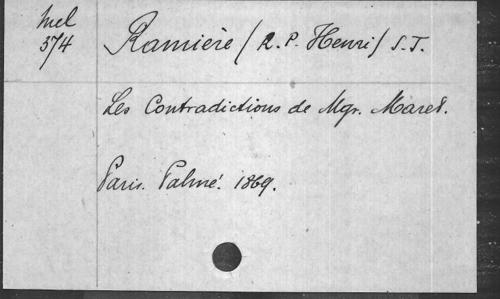 Mel
574
Ramière / R. P. Henri / S. J.
Les Contradictions de Mgr. Maret.
Paris. Palmé. 1869.